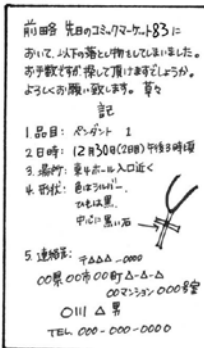 前略 先日のコミックマーケット83に
おいて、以下の落とし物をしてしまいました。
お手数ですが探して頂けますでしょうか。
よろしくお願い致します。 草々
記
1. 品目: ペンダント 1
2. 日時: 12月30日(2日目)午後3時頃
3. 場所: 東4ホール入口近く
4. 形状: 色はシルバー、
ひもは黒、
中心に黒い石
5. 連絡先: 〒△△△-0000
○○県○○市○○町△-△-△
○○マンション 000号室
○川 △男
TEL 000-000-0000